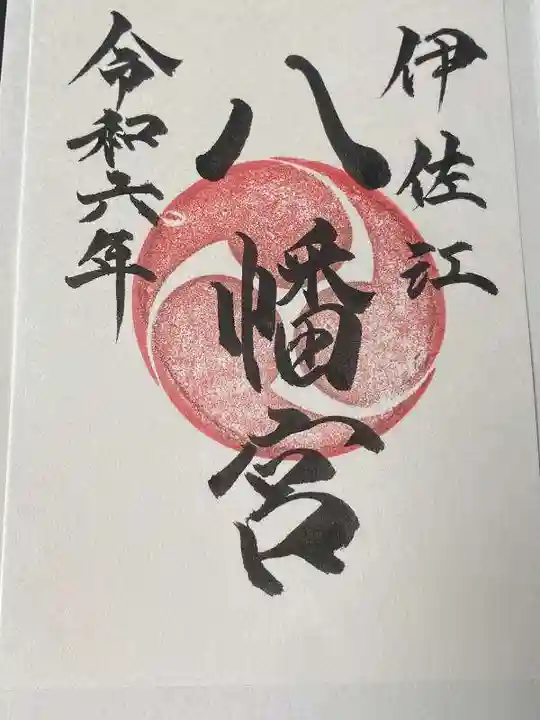 伊佐江
八幡宮
令和六年